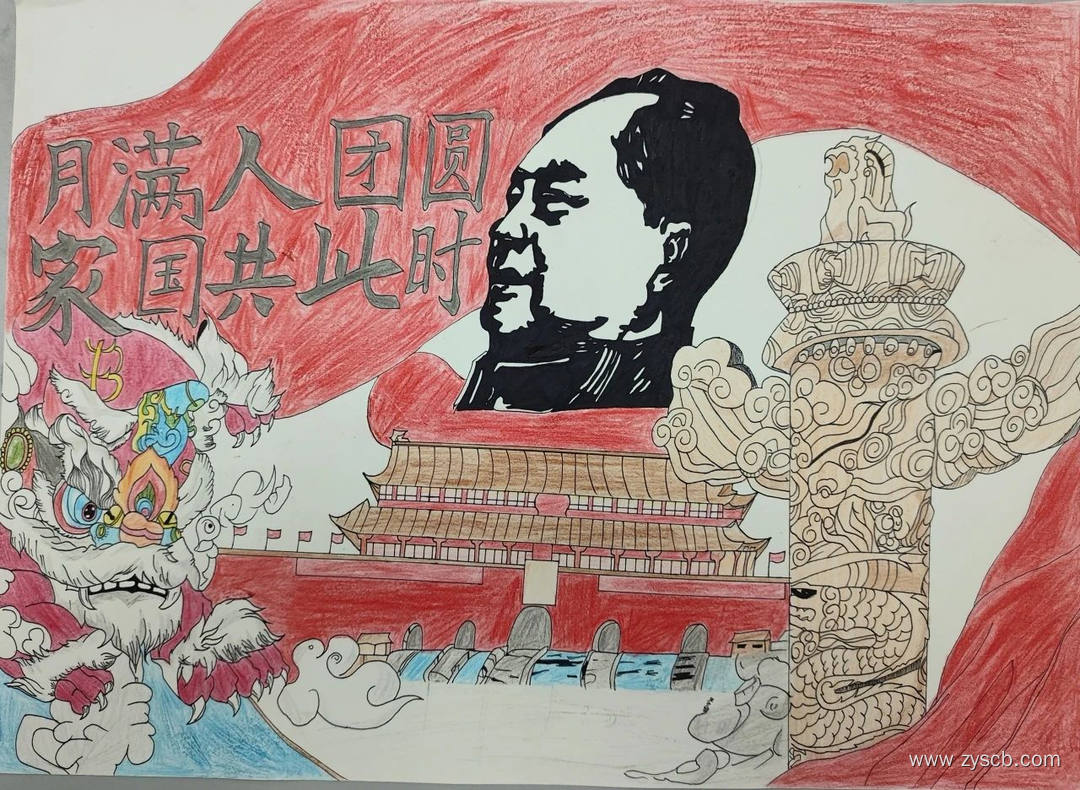 月满人团圆
家国共此时
www.zyscb.com